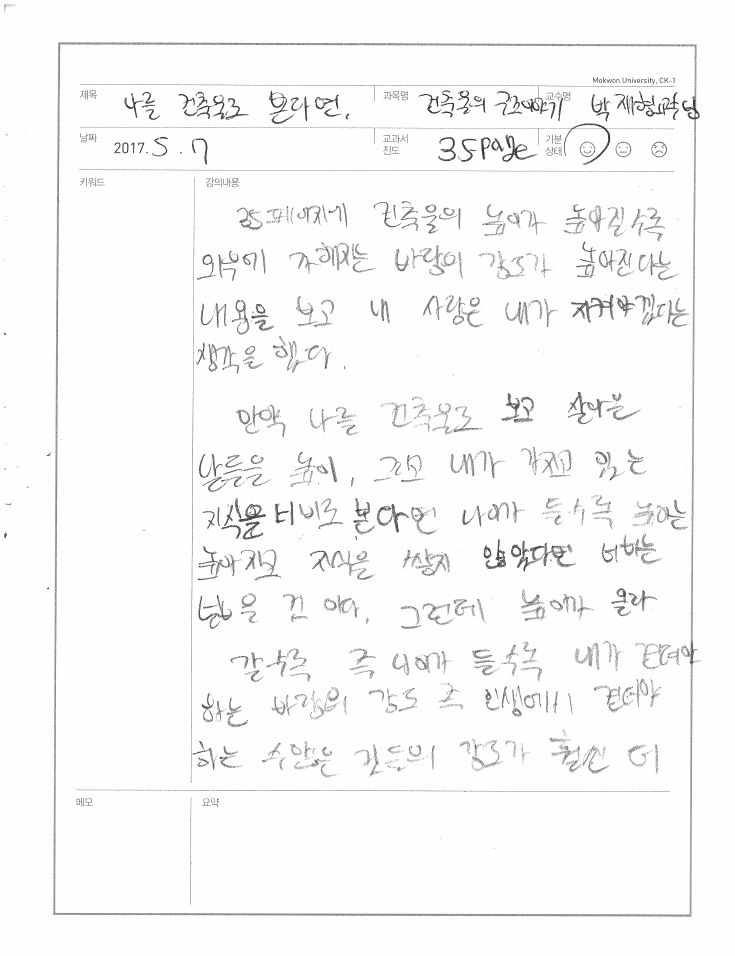 Mokwon University, CK-1
제목 나를 건축물로 본다면, 과목명 건축물의 구조이야기 교수명 박재형교수님
날짜 2017. 5 . 7 교과서 진도 35page 기분 상태
키워드 강의내용
35페이지에 건축물의 높이가 높아질수록
외부에 가해지는 바람의 강도가 높아진다는
내용을 보고 내 사랑은 내가 지켜야겠다는
생각을 했다.
만약 나를 건축물로 보고 살아온
날들을 높이, 그리고 내가 가지고 있는
지식을 너비로 본다면 나이가 들수록 높이는
높아지고 지식을 쌓지 않았다면 너비는
그런데 높이가 올라
갈수록 즉 나이가 들수록 내가 견뎌야
하는 바람의 강도 즉 인생에서 견뎌야
하는 수많은 것들의 강도가 훨씬 더
메모 요약